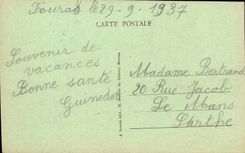 Fouras le 29-9-1937
CARTE POSTALE
Souvenir de
vacances
Bonne santé
Guinedon
Madame Bertrand
20 Rue Jacob-
Le Mans
Sarthe